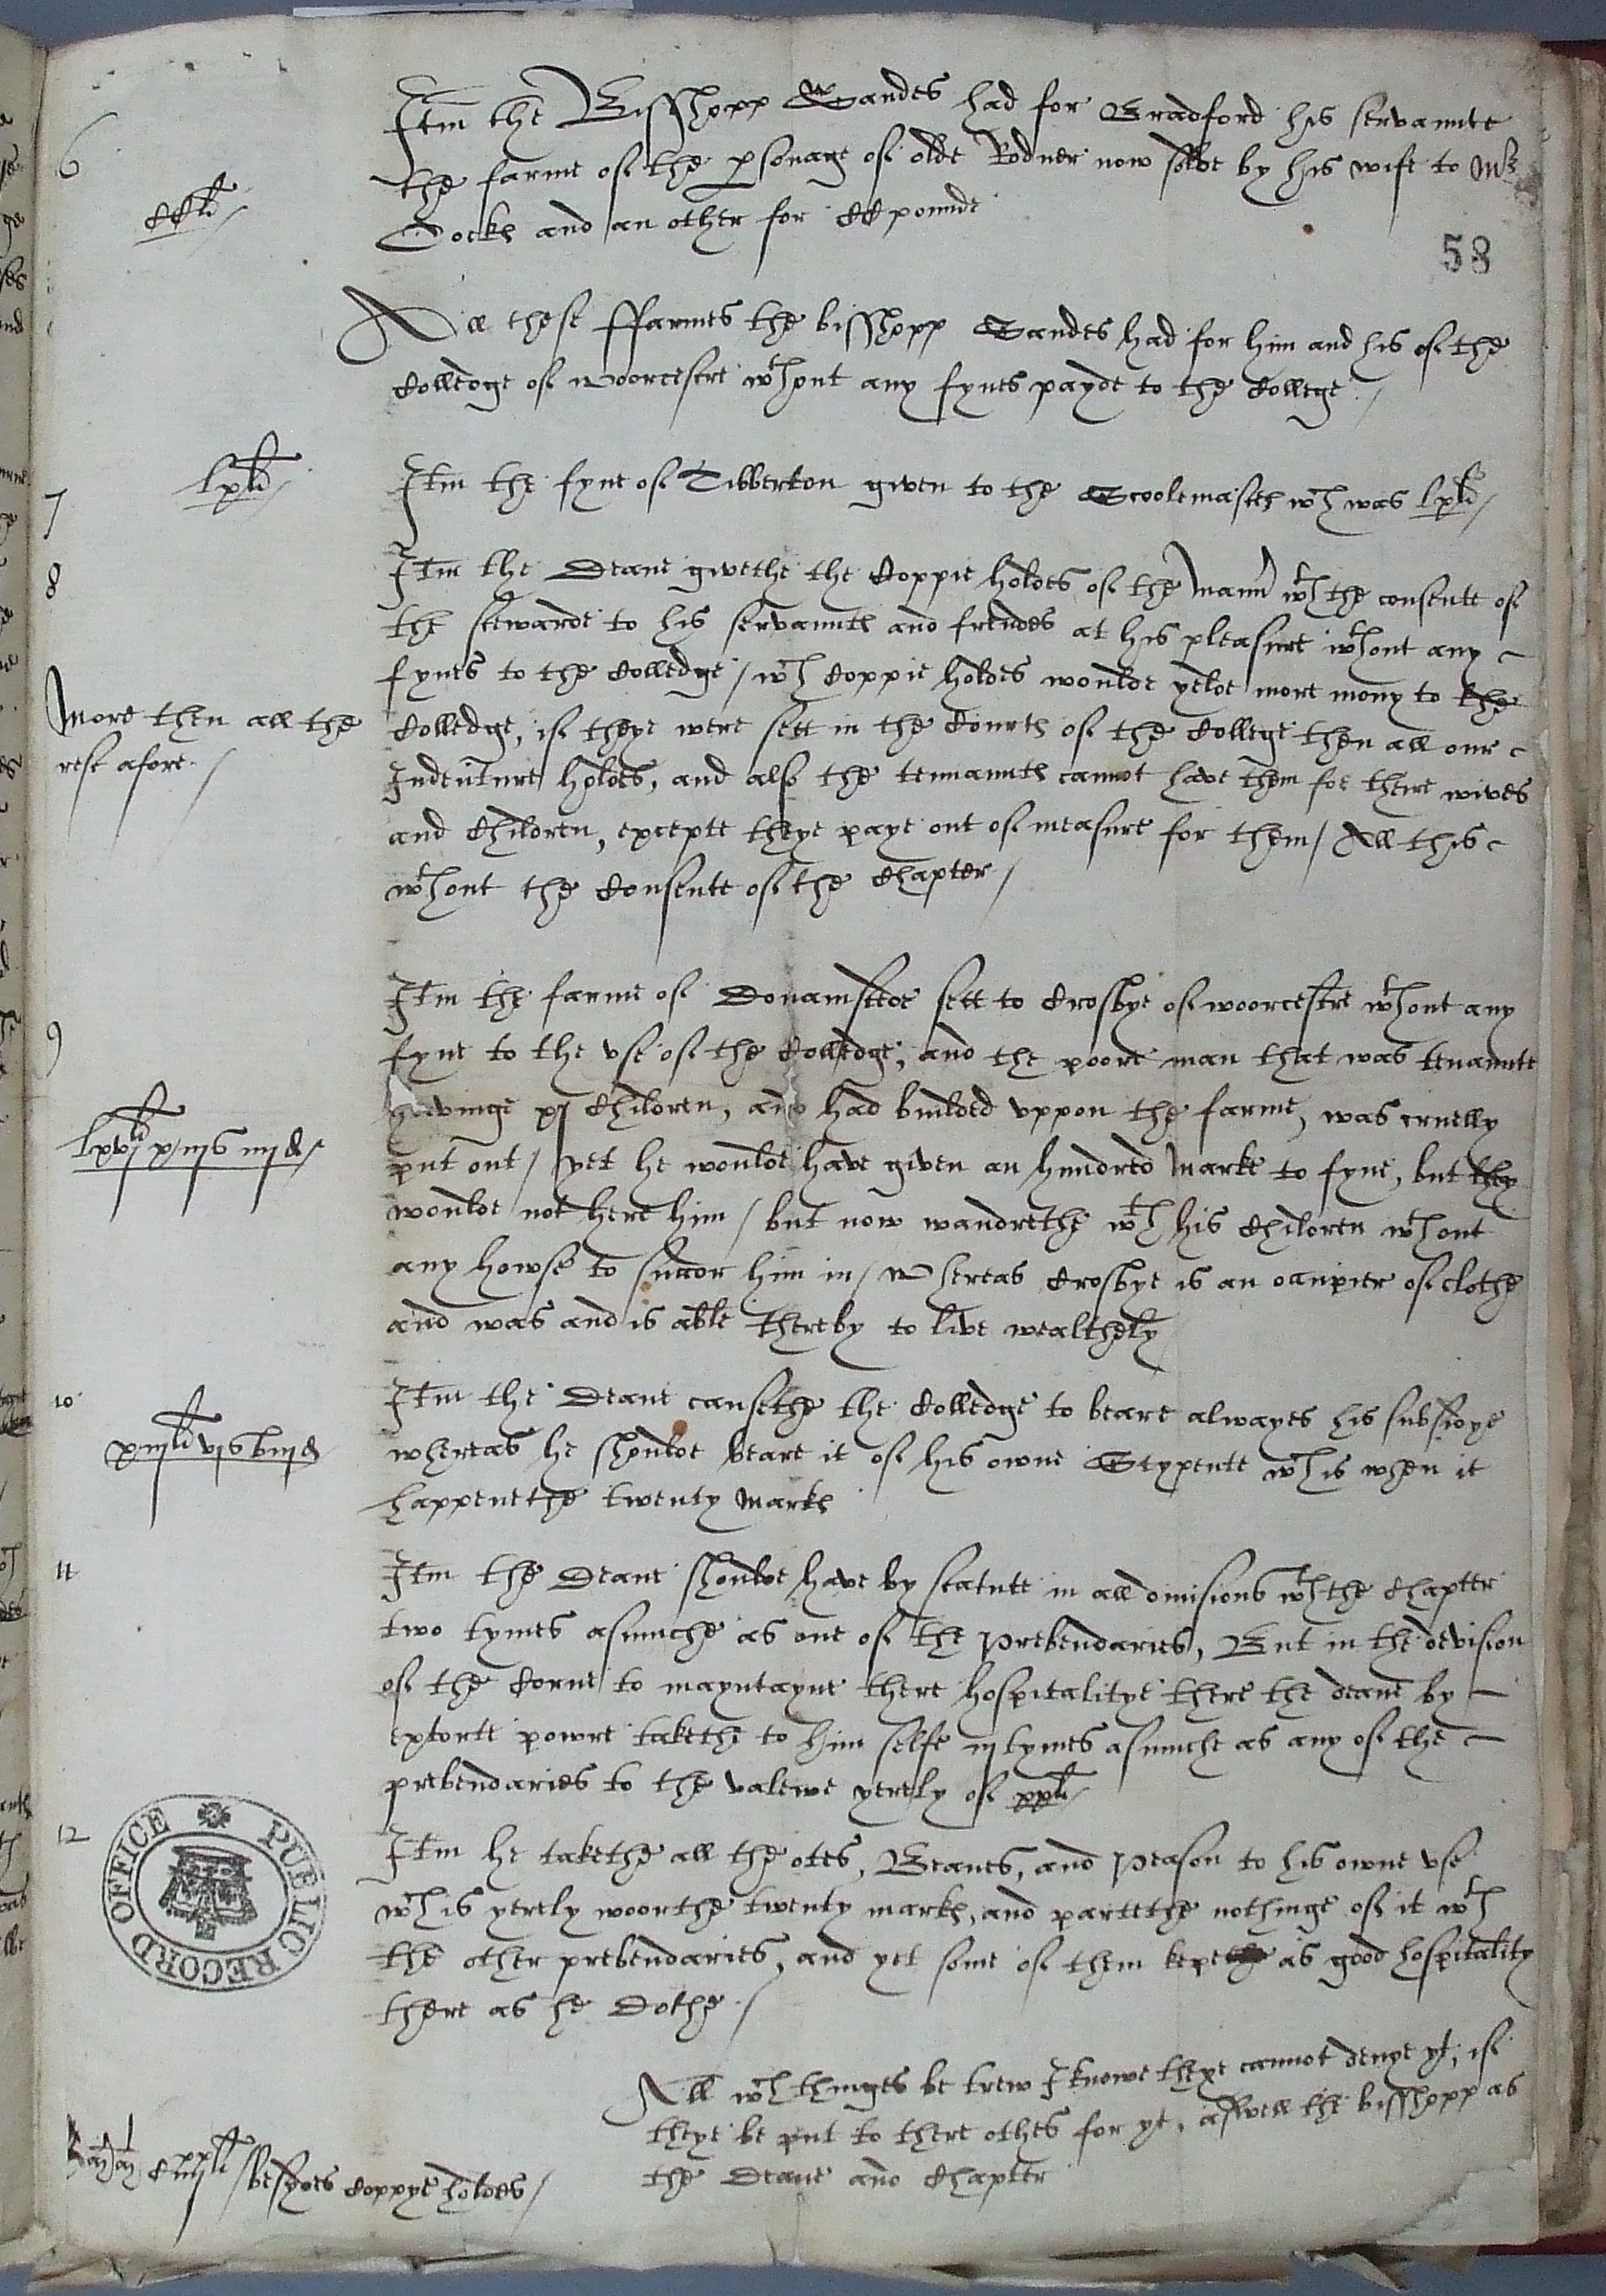 6
Itm the Bisshopp Sandes had for Bradford his servaunte
the farme of the psonage of olde Rodner now solde by his wife to Mr
CCli/
Cockes and an other for CC pounde
58
All these ffarmes the bisshopp Sandes had for him and his of the
Colledge of Woorcestre wthout any fynes payde to the College /
7
lxli/
Itm the fyne of Tibberton given to the Scoolemaster wch was lxli/
8
Itm the Deane givethe the Coppie holdes of the mannr wth the consente of
the stewarde to his servauntes and frendes at his pleasure wthout any
fynes to the Colledge / wch Coppie holdes woulde yelde more mony to the
More then all the
rest afore /
Colledge, if theye were sett in the Courtes of the College then all our
Indenture holdes, and also the tennauntes cannot have them for there wives
and Children, excepte theye paye out of measure for them / All this
wthout the Consente of the Chapter /
9
Itm the farme of Donamstede sett to Crosbye of woorcestre wthout any
fyne to the use of the Colledge, and the poore man that was tenaunte
havinge xj Children, and had builded uppon the farme, was cruelly
lxvjli xiijs iiijd /
put out / yet he woulde have given an hundred marke to fyne, but they
woulde not here him / but now wandrethe wth his Children wthout
any howse to succor him in / Whereas Crosbye is an occupier of clothe
and was and is able thereby to live wealthely
10
Itm the Deane causethe the Colledge to beare alwayes his subsidye
xiijli vjs viijd
whereas he shoulde beare it of his owne Stypente wch is when it
happenethe twenty markes
11
Itm the Deane shoulde have by statute in all divisions wth the Chapter
two tymes asmuche as one of the Prebendaries, But in the devision
of the Corne to mayntayne there hospitalitye there the deane by
extorte powre takethe to him selfe iij tymes asmuche as any of the
prebendaries to the valewe yerely of xxli/
12
Itm he takethe all the otes, Beanes, and Peason to his owne use
wch is yerely woorthe twenty markes, and partethe nothinge of it wth
the other prebendaries, and yet some of them kepe as good hospitality
there as he Dothe /
PUBLIC RECORD OFFICE
All wch thinges be trew I knowe theye cannot denye yt, if
theye be put to there othes for yt, aswell the bisshopp as
the Deane and Chapter
besydes Coppye holdes /